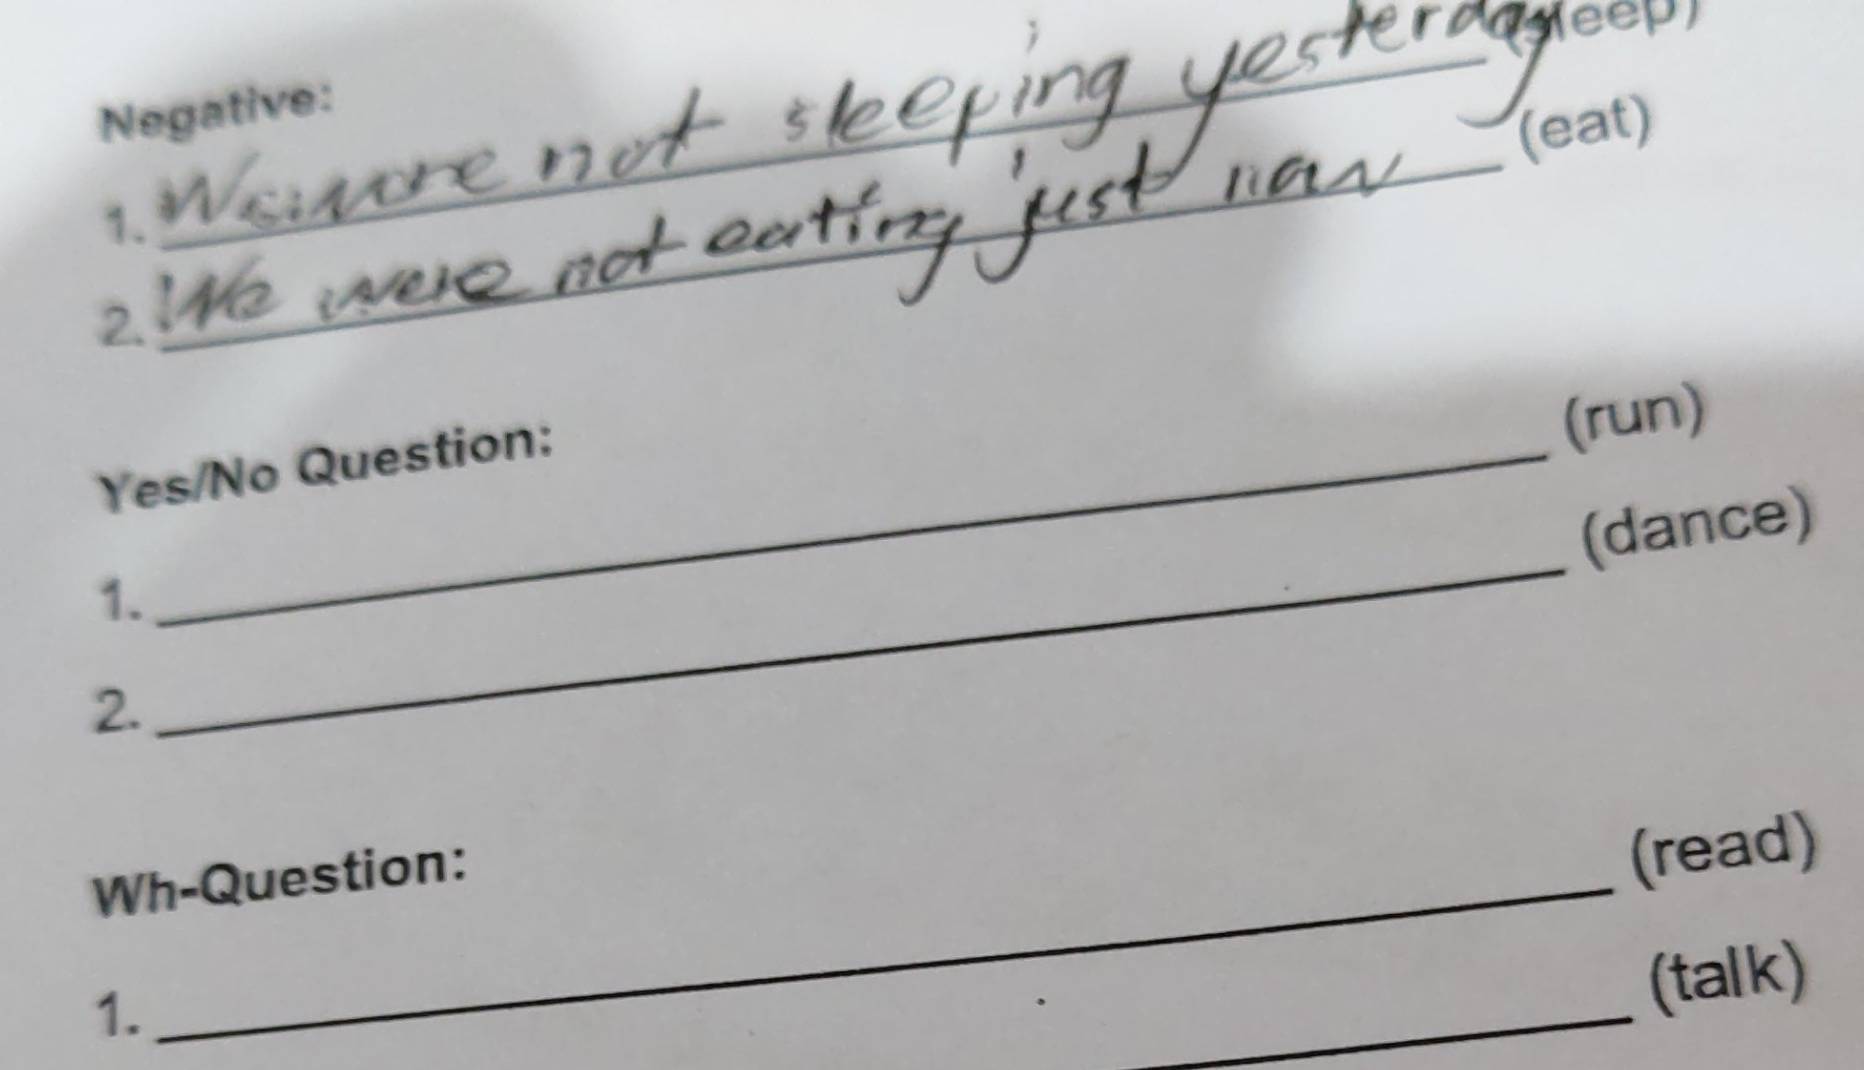 Negative:
1. We were not sleeping yesterday (sleep)
2. We were not eating just now (eat)
Yes/No Question:
1. (run)
2. (dance)
Wh-Question:
1. (read)
(talk)